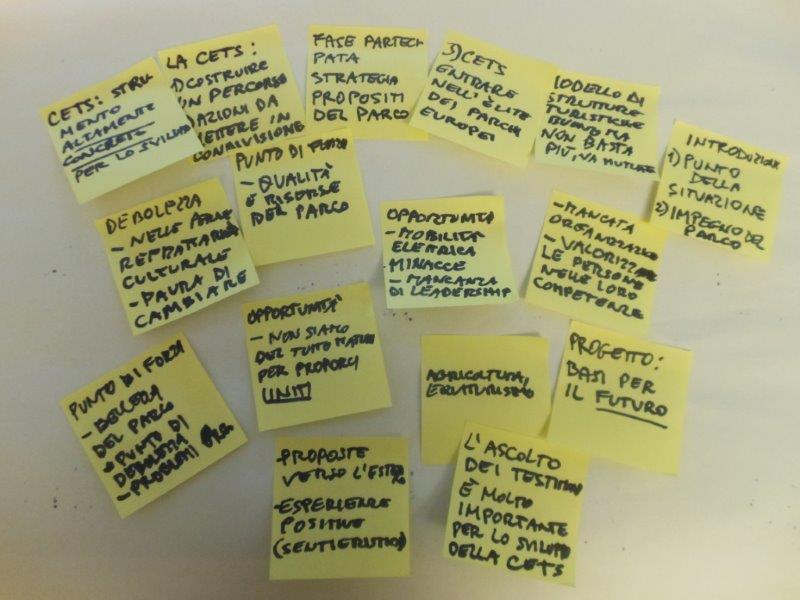 CETS: STRU
MENTO
ALTAMENTE
CONCRETO
PER LO SVILUPPO
LA CETS:
1) COSTRUIRE
UN PERCORSO
2) AZIONI DA
METTERE IN
CONDIVISIONE
FASE PARTECI
PATA
STRATEGIA
PROPOSITI
DEL PARCO
3) CETS
ENTRARE
NELL'ÉLITE
DEI PARCHI
EUROPEI
MODELLO DI
STRUTTURE
TURISTICHE
NON BASTA
PIÙ, VA
INTRODUZIONE
1) PUNTO
DELLA
SITUAZIONE
2) IMPEGNO DEL
PARCO
DEBOLEZZA
- NELLE
CULTURALE
- PAURA DI
CAMBIARE
PUNTO DI FORZA
- QUALITÀ
E RISORSE
DEL PARCO
OPPORTUNITÀ
- MOBILITÀ
ELETTRICA
MINACCE
- MANCANZA
DI LEADERSHIP
- MANCATA
ORGANIZZAZIONE
- VALORIZZARE
LE PERSONE
NELLE LORO
COMPETENZE
PUNTO DI FORZA
- BELLEZZA
DEL PARCO
- PUNTO DI
DEBOLEZZA
- PROBLEMI
OPPORTUNITÀ
- NON SIAMO
DEL TUTTO MATURI
PER PROPORCI
UNITI
AGRICOLTURA,
PROGETTO:
BASI PER
IL FUTURO
- PROPOSTE
VERSO L'ESTERO
- ESPERIENZE
POSITIVE
L'ASCOLTO
DEI TESTIMONI
È MOLTO
IMPORTANTE
PER LO SVILUPPO
DELLA CETS